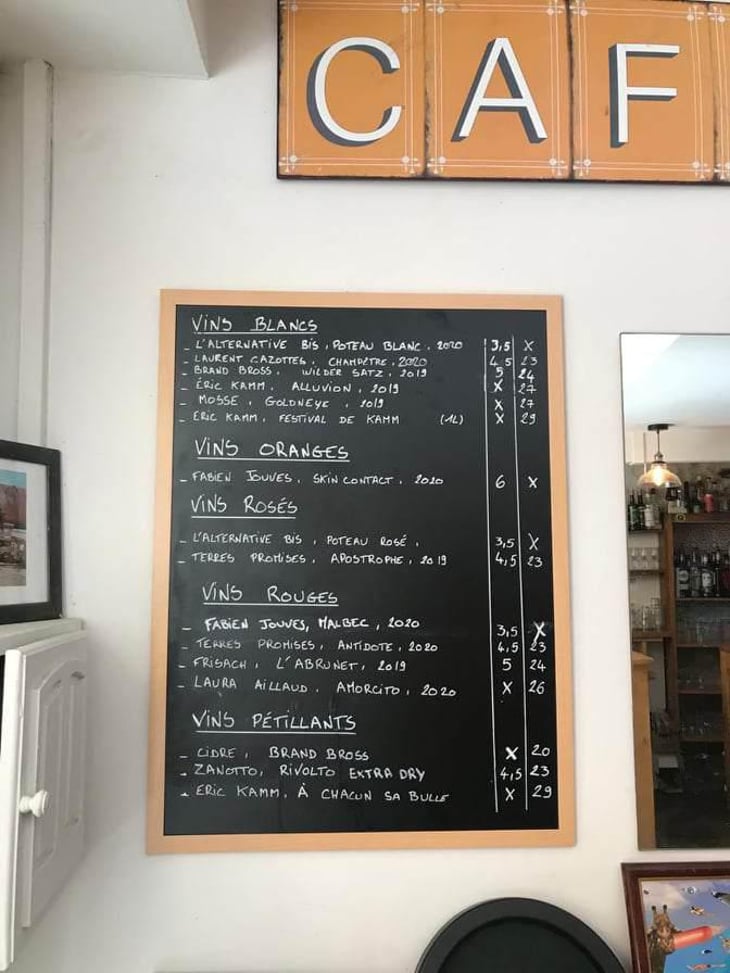 CAF
VINS BLANCS
- L'ALTERNATIVE BIS, POTEAU BLANC. 2020 3,5 X
- LAURENT CAZOTTES. CHAMPÊTRE. 2020 4,5 23
- BRAND BROSS. WILDER SATZ. 2019 5 24
- ÉRIC KAMM. ALLUVION, 2019 X 27
- MOSSE. GOLDNEYE, 2019 X 27
- ERIC KAMM. FESTIVAL DE KAMM (1L) X 29
VINS ORANGES
- FABIEN JOUVES. SKIN CONTACT. 2020 6 X
VINS ROSÉS
- L'ALTERNATIVE BIS, POTEAU ROSÉ. 3,5 X
- TERRES PROMISES, APOSTROPHE, 2019 4,5 23
VINS ROUGES
- FABIEN JOUVES, MALBEC, 2020 3,5 X
- TERRES PROMISES, ANTIDOTE, 2020 4,5 23
- FRISACH, L'ABRUNET, 2019 5 24
- LAURA AILLAUD. AMORCITO, 2020 X 26
VINS PÉTILLANTS
- CIDRE, BRAND BROSS X 20
- ZANOTTO, RIVOLTO EXTRA DRY 4,5 23
- ERIC KAMM. À CHACUN SA BULLE X 29